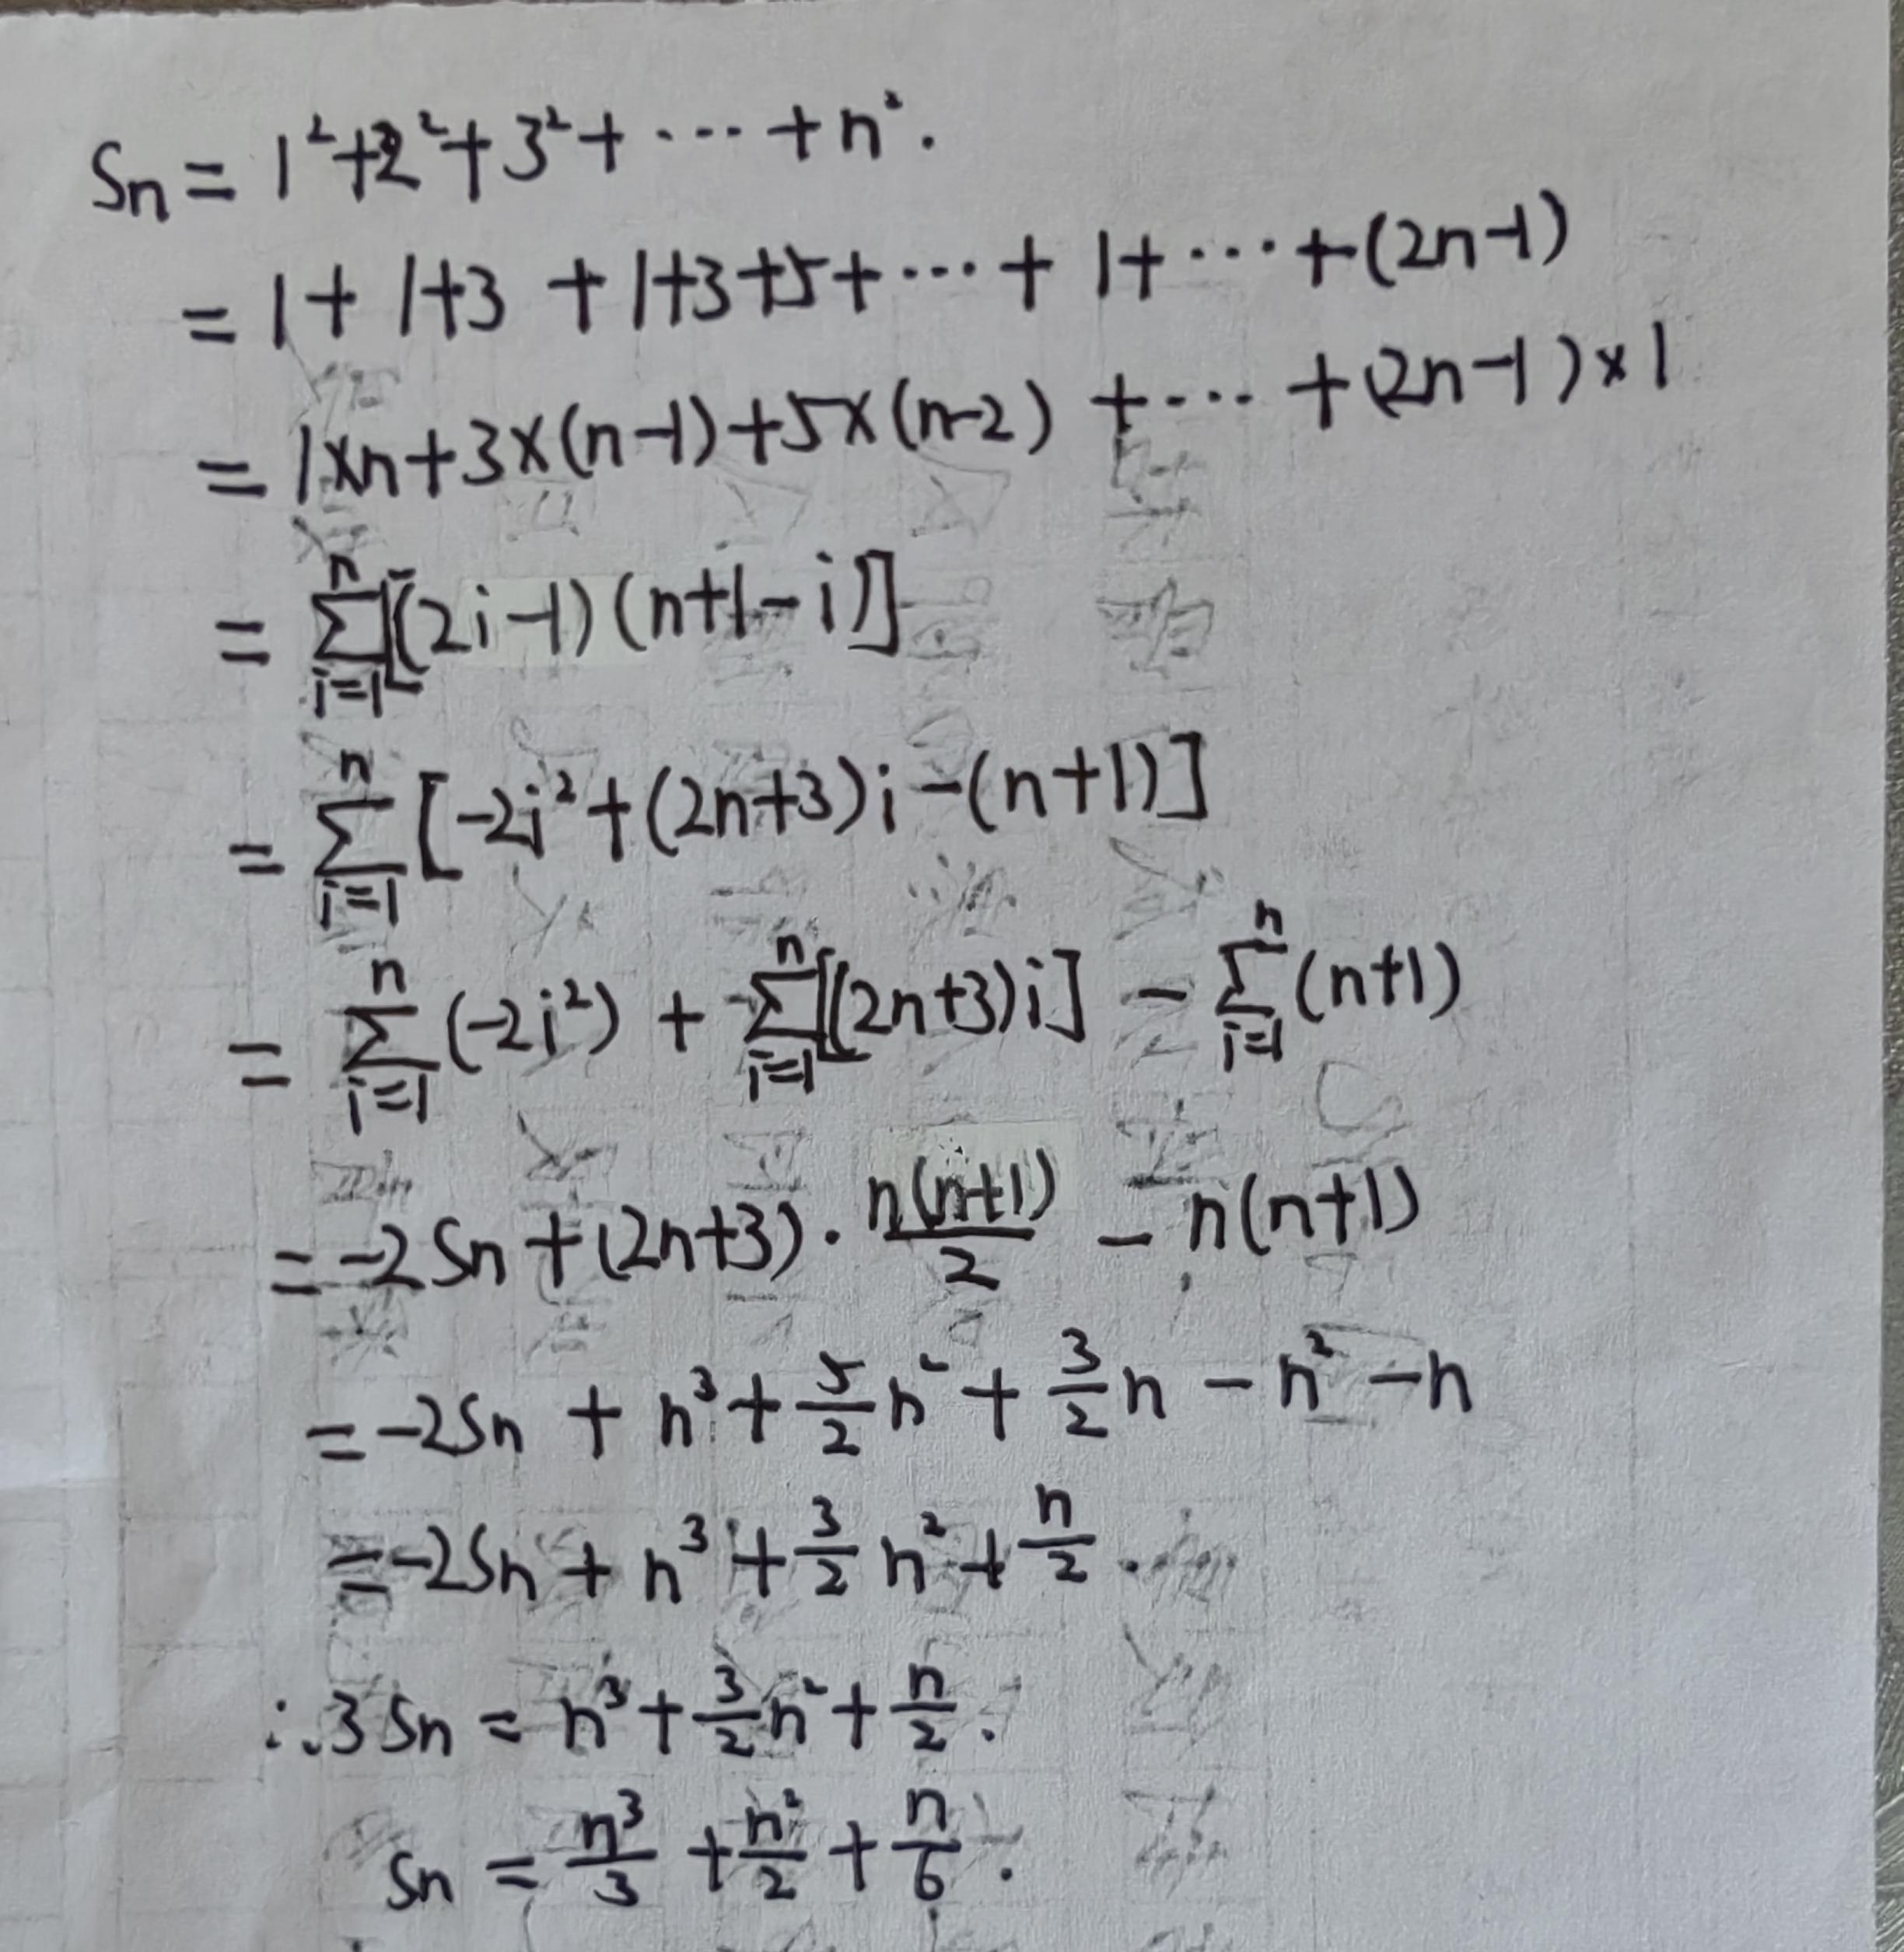 Sn = 1² + 2² + 3² + ··· + n².
= 1 + 1+3 + 1+3+5 + ··· + 1+ ··· + (2n-1)
= 1×n + 3×(n-1) + 5×(n-2) + ··· + (2n-1)×1
= ∑_{i=1}^{n} [(2i-1)(n+1-i)]
= ∑_{i=1}^{n} [-2i² + (2n+3)i - (n+1)]
= ∑_{i=1}^{n} (-2i²) + ∑_{i=1}^{n} [(2n+3)i] - ∑_{i=1}^{n} (n+1)
= -2Sn + (2n+3) · n(n+1)/2 - n(n+1)
= -2Sn + n³ + 5/2 n² + 3/2 n - n² - n
= -2Sn + n³ + 3/2 n² + n/2.
∴ 3Sn = n³ + 3/2 n² + n/2.
Sn = n³/3 + n²/2 + n/6.